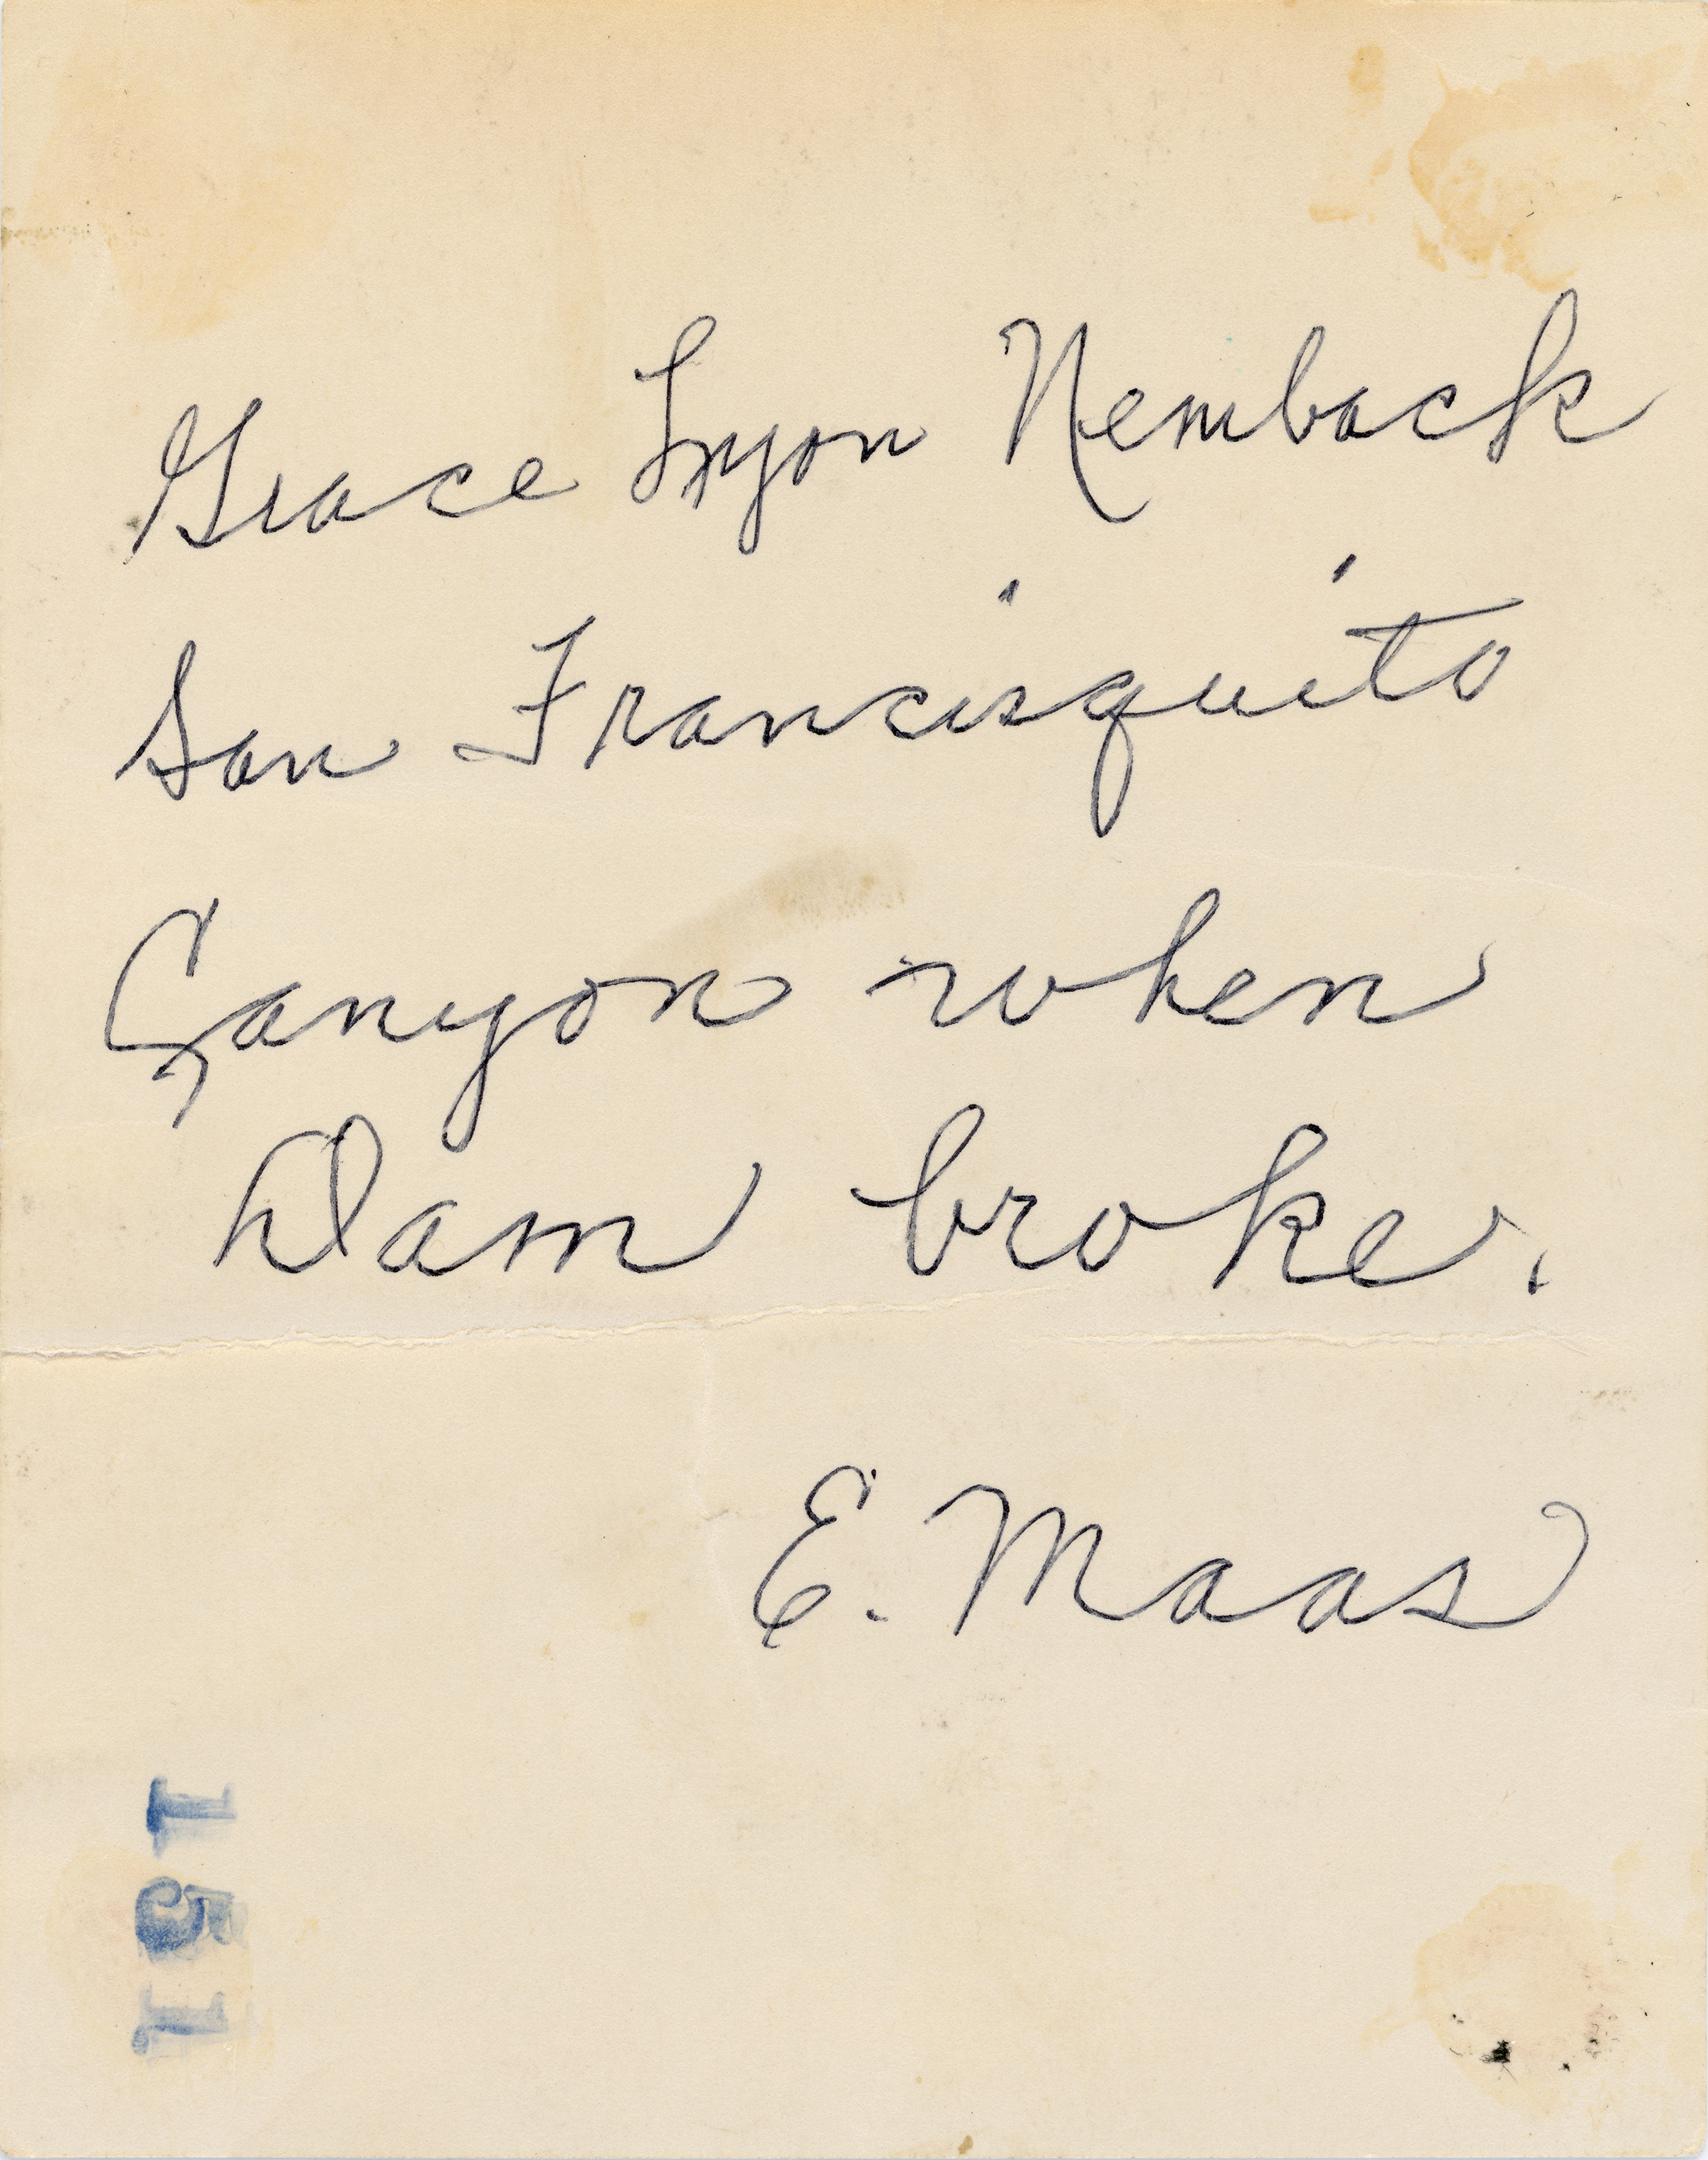 Grace Lyon Nemback
San Francisquito
Canyon when
Dam broke.
E. Maas
151